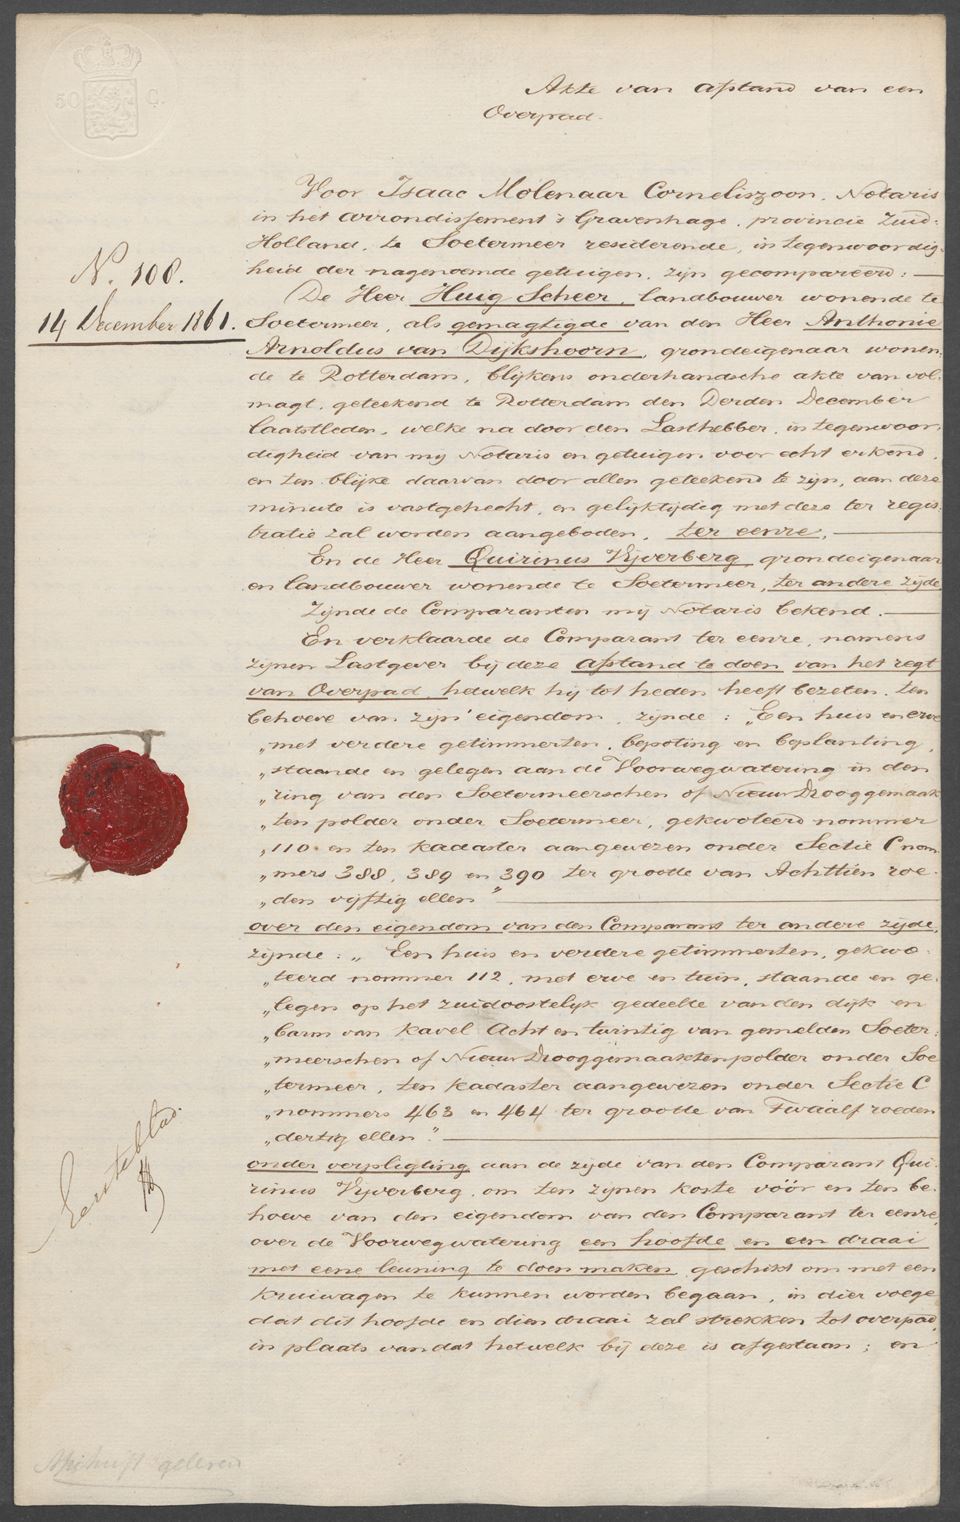 50 C.
Akte van afstand van een
Overpad.
Voor Isaac Molenaar Corneliszoon, Notaris
in het arrondissement 's Gravenhage, provincie Zuid-
Holland, te Soetermeer residerende, in tegenwoordig-
heid der nagenoemde getuigen, zijn gecompareerd:
N. 108.
14 December 1861.
De Heer Huig Scheer, landbouwer wonende te
Soetermeer, als gemagtigde van den Heer Anthonie
Arnoldus van Dijkshoorn, grondeigenaar wonen-
de te Rotterdam, blijkens onderhandsche akte van vol-
magt, geteekend te Rotterdam den Derden December
laatstleden, welke na door den Lasthebber, in tegenwoor-
digheid van mij Notaris en getuigen voor echt erkend,
en ten blijke daarvan door allen geteekend te zijn, aan deze
minute is vastgehecht, en gelijktijdig met deze ter regis-
tratie zal worden aangeboden, ter eenre,
En de Heer Quirinus Vijverberg grondeigenaar
en landbouwer wonende te Soetermeer, ter andere zijde
Zijnde de Comparanten mij Notaris bekend.
En verklaarde de Comparant ter eenre, namens
zijnen Lastgever bij deze afstand te doen van het regt
van Overpad, hetwelk hij tot heden heeft bezeten, ten
behoeve van zijn eigendom, zijnde: „Een huis en erve
„met verdere getimmerten, bepoting en beplanting,
„staande en gelegen aan de Voorwegwatering in den
„ring van den Soetermeerschen of Nieuw Drooggemaak-
„ten polder onder Soetermeer, gekwoteerd nommer
„110 en ten kadaster aangewezen onder Sectie C nom-
„mers 388, 389 en 390 ter grootte van Achttien roe-
„den vijftig ellen"
over den eigendom van den Comparant ter andere zijde,
zijnde: „Een huis en verdere getimmerten, gekwo-
„teerd nommer 112, met erve en tuin, staande en ge-
„legen op het zuidoostelijk gedeelte van den dijk en
„barm van kavel Acht en twintig van gemelden Soeter-
„meerschen of Nieuw Drooggemaakten polder onder Soe-
„termeer, ten kadaster aangewezen onder Sectie C
„nommers 463 en 464 ter grootte van Twaalf roeden
„dertig ellen."
onder verpligting aan de zijde van den Comparant Qui-
rinus Vijverberg, om ten zijnen koste vóór en ten be-
hoeve van den eigendom van den Comparant ter eenre,
over de Voorwegwatering een hoofde en een draai
met eene leuning te doen maken, geschikt om met een
kruiwagen te kunnen worden begaan, in dier voege
dat dit hoofde en dien draai zal strekken tot overpad,
in plaats van dat hetwelk bij deze is afgestaan; en
Eerste blad.
Afschrift geleverd